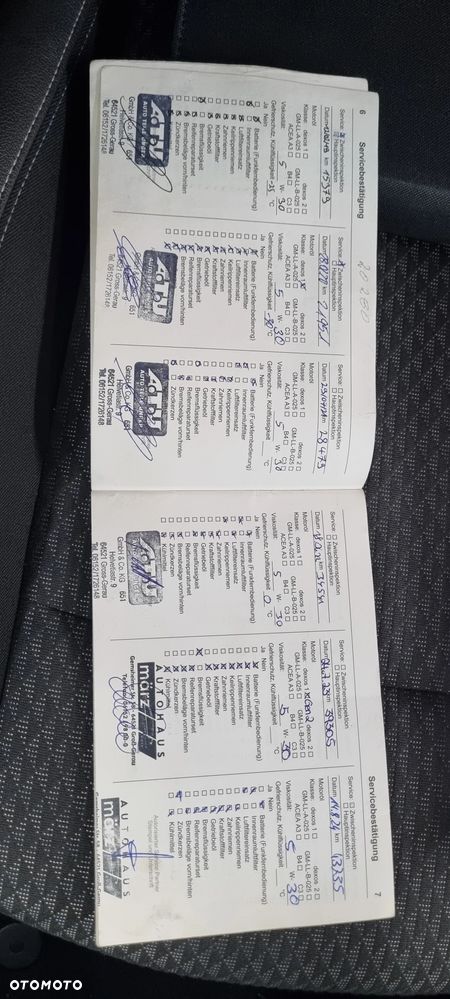 6 Servicebestätigung
Service: Zwischeninspektion
Hauptinspektion
Datum km 15379
Motoröl
Klasse: dexos 1 dexos 2
GM-LL-A-025 GM-LL-B-025
ACEA A3 B4 C3
Viskosität: 5 W- 30
Gefrierschutz, Kühlflüssigkeit °C
Ja Nein
Batterie (Funkfernbedienung)
Innenraumluftfilter
Luftfiltereinsatz
Keilrippenriemen
Zahnriemen
Kraftstofffilter
Getriebeöl
Bremsflüssigkeit
Reifenreparaturset
Bremsbeläge vorn/hinten
Zündkerzen
ATU
AUTO TEILE UNGER
GmbH & Co. KG 651
Helvetiastr. 9
64521 Gross-Gerau
Tel. 06152/1726148
Service: Zwischeninspektion
Hauptinspektion
Datum km
Motoröl
Klasse: dexos 1 dexos 2
GM-LL-A-025 GM-LL-B-025
ACEA A3 B4 C3
Viskosität: 5 W- 30
Gefrierschutz, Kühlflüssigkeit -30 °C
Ja Nein
Batterie (Funkfernbedienung)
Innenraumluftfilter
Luftfiltereinsatz
Keilrippenriemen
Zahnriemen
Kraftstofffilter
Getriebeöl
Bremsflüssigkeit
Reifenreparaturset
Bremsbeläge vorn/hinten
Zündkerzen
ATU
651
64521 Gross-Gerau
Tel. 06152/1726148
Service: Zwischeninspektion
Hauptinspektion
Datum km 28473
Motoröl
Klasse: dexos 1 dexos 2
GM-LL-A-025 GM-LL-B-025
ACEA A3 B4 C3
Viskosität: 5 W- 30
Gefrierschutz, Kühlflüssigkeit °C
Ja Nein
Batterie (Funkfernbedienung)
Innenraumluftfilter
Luftfiltereinsatz
Keilrippenriemen
Zahnriemen
Kraftstofffilter
Getriebeöl
Bremsflüssigkeit
Reifenreparaturset
Bremsbeläge vorn/hinten
Zündkerzen
ATU
AUTO TEILE UNGER
651
64521 Gross-Gerau
Tel. 06152/1726148
Servicebestätigung 7
Service: Zwischeninspektion
Hauptinspektion
Datum km
Motoröl
Klasse: dexos 1 dexos 2
GM-LL-A-025 GM-LL-B-025
ACEA A3 B4 C3
Viskosität: 5 W- 30
Gefrierschutz, Kühlflüssigkeit °C
Ja Nein
Batterie (Funkfernbedienung)
Innenraumluftfilter
Luftfiltereinsatz
Keilrippenriemen
Zahnriemen
Kraftstofffilter
Getriebeöl
Bremsflüssigkeit
Reifenreparaturset
Bremsbeläge vorn/hinten
Zündkerzen
Kühlmittel
ATU
GmbH & Co. KG 651
Helvetiastr. 9
64521 Gross-Gerau
Tel. 06152/1726148
Service: Zwischeninspektion
Hauptinspektion
Datum km 39305
Motoröl
Klasse: dexos 1 Gen2 dexos 2
GM-LL-A-025 GM-LL-B-025
ACEA A3 B4 C3
Viskosität: 5 W- 30
Gefrierschutz, Kühlflüssigkeit °C
Ja Nein
Batterie (Funkfernbedienung)
Innenraumluftfilter
Luftfiltereinsatz
Keilrippenriemen
Zahnriemen
Kraftstofffilter
Getriebeöl
Bremsflüssigkeit
Reifenreparaturset
Bremsbeläge vorn/hinten
Zündkerzen
Kühlmittel
AUTOHAUS
märz
Service: Zwischeninspektion
Hauptinspektion
Datum km
Motoröl
Klasse: dexos 1 dexos 2
GM-LL-A-025 GM-LL-B-025
ACEA A3 B4 C3
Viskosität: 5 W- 30
Gefrierschutz, Kühlflüssigkeit °C
Ja Nein
Batterie (Funkfernbedienung)
Innenraumluftfilter
Luftfiltereinsatz
Keilrippenriemen
Zahnriemen
Kraftstofffilter
Getriebeöl
Bremsflüssigkeit
Reifenreparaturset
Bremsbeläge vorn/hinten
Zündkerzen
Kühlmittel
AUTOHAUS
märz
OTOMOTO